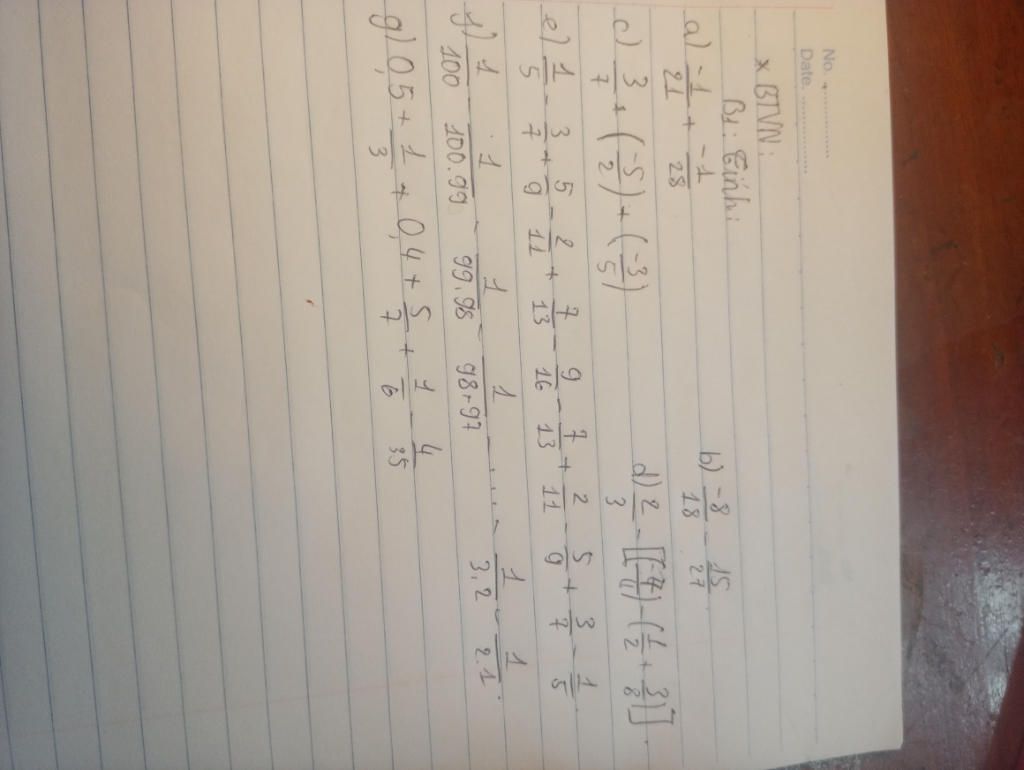 No. ................
Date ................
* BTVN:
B1: Tính:
a) \frac{-1}{21} + \frac{-1}{28} b) \frac{-8}{18} - \frac{15}{27}
c) \frac{3}{7} + (\frac{-5}{2}) + (\frac{-3}{5}) d) \frac{2}{3} - [(\frac{-7}{4}) - (\frac{1}{2} + \frac{3}{8})].
e) \frac{1}{5} - \frac{3}{7} + \frac{5}{9} - \frac{2}{11} + \frac{7}{13} - \frac{9}{16} - \frac{7}{13} + \frac{2}{11} - \frac{5}{9} + \frac{3}{7} - \frac{1}{5}.
f) \frac{1}{100} - \frac{1}{100.99} - \frac{1}{99.98} - \frac{1}{98.97} - .... - \frac{1}{3.2} - \frac{1}{2.1}.
g) 0,5 + \frac{1}{3} + 0,4 + \frac{5}{7} + \frac{1}{6} - \frac{4}{35}